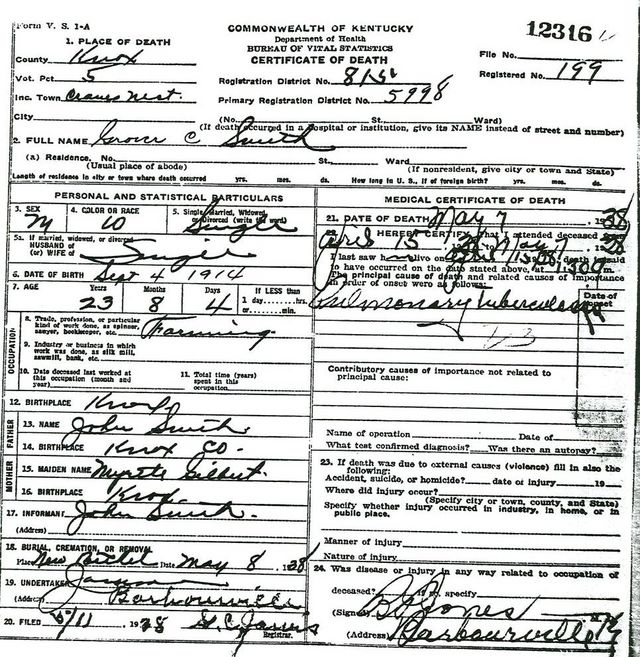 Form V. S. 1-A
COMMONWEALTH OF KENTUCKY
Department of Health
BUREAU OF VITAL STATISTICS
CERTIFICATE OF DEATH
12316
File No.
Registered No. 199
1. PLACE OF DEATH
County Knox
Vot. Pct 5
Inc. Town Cranes Nest.
City
Registration District No.
Primary Registration District No. 5998
(No. St., Ward)
(If death occurred in a hospital or institution, give its NAME instead of street and number)
2. FULL NAME Grover C Smith
(a) Residence. No. St., Ward
(Usual place of abode) (If nonresident, give city or town and State)
Length of residence in city or town where death occurred yrs. mos. ds. How long in U. S., if of foreign birth? yrs. mos. ds.
PERSONAL AND STATISTICAL PARTICULARS
3. SEX M
4. COLOR OR RACE W
5. Single, Married, Widowed, or Divorced (write the word) Single
5a. If married, widowed, or divorced
HUSBAND of
(or) WIFE of Single
6. DATE OF BIRTH Sept 4 1914
7. AGE Years Months Days If LESS than
23 8 4
1 day hrs.
or min.
OCCUPATION
8. Trade, profession, or particular
kind of work done, as spinner,
sawyer, bookkeeper, etc. Farming
9. Industry or business in which
work was done, as silk mill,
sawmill, bank, etc.
10. Date deceased last worked at
this occupation (month and
year)
11. Total time (years)
spent in this
occupation
12. BIRTHPLACE Knox
FATHER
13. NAME John Smith
14. BIRTHPLACE Knox Co.
MOTHER
15. MAIDEN NAME Myrtle Gilbert
16. BIRTHPLACE Knox
17. INFORMANT John Smith
(Address)
18. BURIAL, CREMATION, OR REMOVAL
Place New Bethel Date May 8 1938
19. UNDERTAKER
(Address) Barbourville
20. FILED 5/11 1938
Registrar.
MEDICAL CERTIFICATE OF DEATH
21. DATE OF DEATH May 7 1938
22. I HEREBY CERTIFY, That I attended deceased from
April 15 1938 to May 7 1938
I last saw him alive on April 15 1938, death is said
to have occurred on the date stated above, at m.
The principal cause of death and related causes of importance
in order of onset were as follows:
Date of onset
Pulmonary tuberculosis
Contributory causes of importance not related to
principal cause:
Name of operation Date of
What test confirmed diagnosis? Was there an autopsy?
23. If death was due to external causes (violence) fill in also the
following:
Accident, suicide, or homicide? date of injury 19
Where did injury occur?
(Specify city or town, county, and State)
Specify whether injury occurred in industry, in home, or in
public place.
Manner of injury
Nature of injury
24. Was disease or injury in any way related to occupation of
deceased? If so, specify
(Signed) Jones
(Address) Barbourville Ky